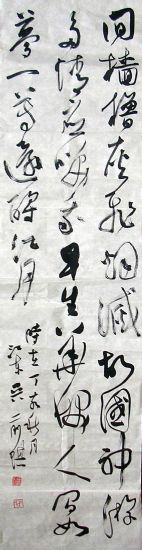 间樯橹灰飞烟灭故國神游
多情应笑我早生华发人间如
梦一尊还酹江月
时在丁亥